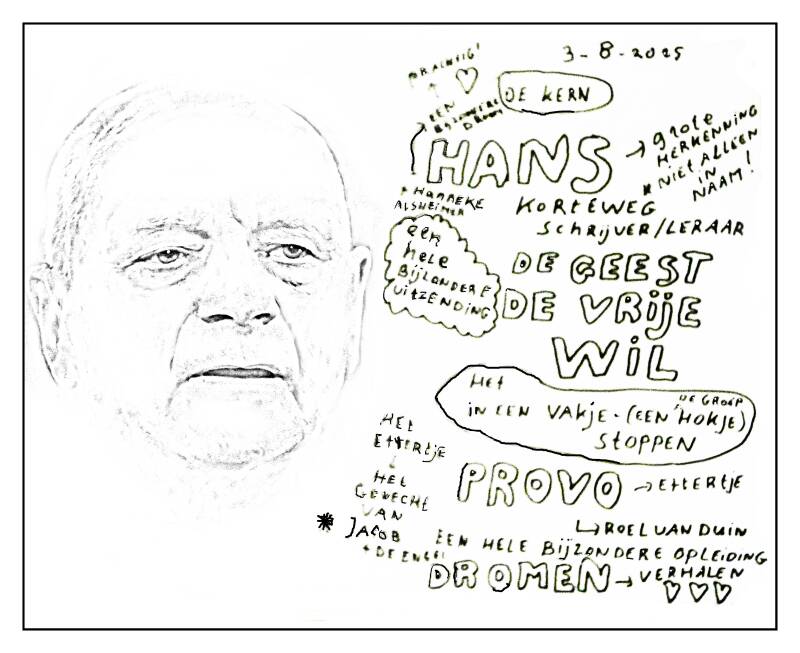 3-8-2025
PRACHTIG!
DE KERN
EEN
BIJZONDERE
DROOM
HANS
→ grote
HERKENNING
* NIET ALLEEN
IN
NAAM!
+ HANNEKE
ALSHEIMER
KORTEWEG
SCHRIJVER/LERAAR
een
hele
BIJZONDERE
UITZENDING
DE GEEST
DE VRIJE
WIL
HET
IN EEN VAKJE - (EEN HOKJE)
DE GROEP
STOPPEN
HET
ETTERTJE
↓
HET
GEVECHT
VAN
* JACOB
+ DE ENGEL
PROVO → ETTERTJE
↳ ROEL VAN DUIN
EEN HELE BIJZONDERE OPLEIDING
DROMEN → VERHALEN